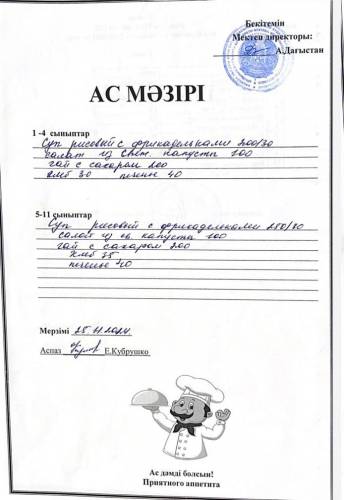 Бекітемін
Мектеп директоры:
А.Дағыстан
АС МӘЗІРІ
1 -4 сыныптар
Суп рисовый с фрикадельками 200/30
салат из свеж. капусты 100
чай с сахаром 200
хлеб 30 печенье 40
5-11 сыныптар
Суп рисовый с фрикадельками 250/30
салат из св. капусты 100
чай с сахаром 200
хлеб 75
печенье 40
Мерзімі 25.11.2024
Аспаз Е.Кубрушко
Ас дәмді болсын!
Приятного аппетита